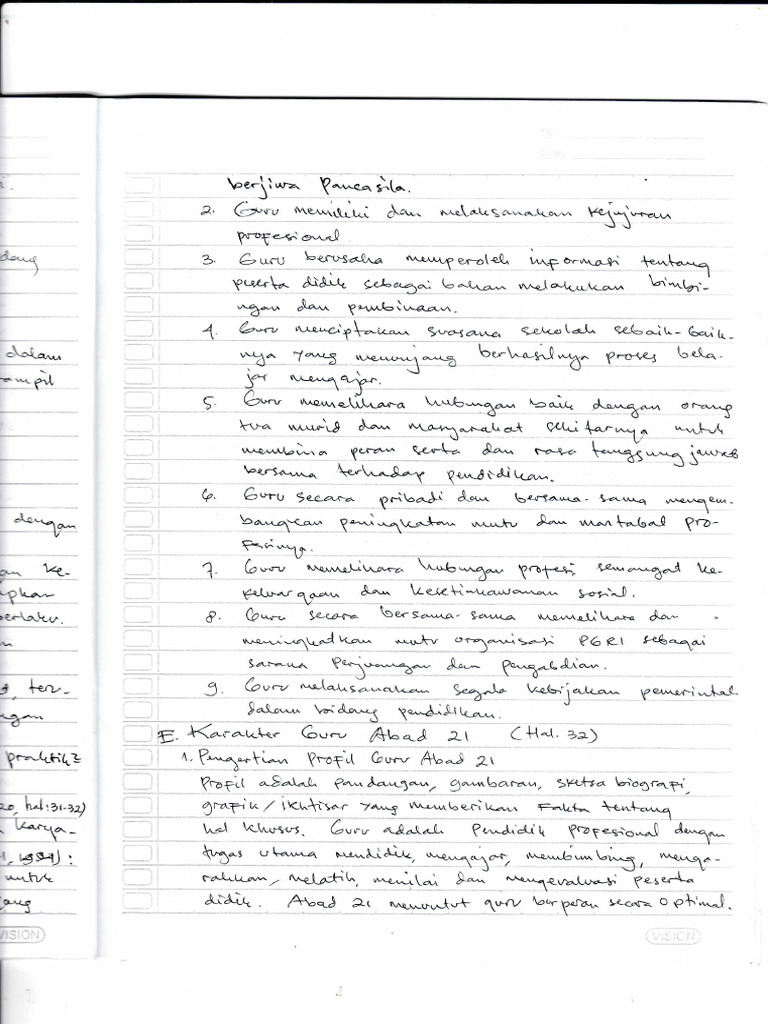 berjiwa Pancasila.
2. Guru memiliki dan melaksanakan kejujuran
profesional
3. Guru berusaha memperoleh informasi tentang
peserta didik sebagai bahan melakukan bimbi-
ngan dan pembinaan.
4. Guru menciptakan suasana sekolah sebaik-baik-
nya yang menunjang berhasilnya proses bela-
jar mengajar.
5. Guru memelihara hubungan baik dengan orang
tua murid dan masyarakat sekitarnya untuk
membina peran serta dan rasa tanggung jawab
bersama terhadap pendidikan.
6. Guru secara pribadi dan bersama-sama mengem-
bangkan peningkatan mutu dan martabat pro-
fesinya.
7. Guru memelihara hubungan profesi, semangat ke-
keluargaan dan kesetiakawanan sosial.
8. Guru secara bersama-sama memelihara dan
meningkatkan mutu organisasi PGRI sebagai
sarana perjuangan dan pengabdian.
9. Guru melaksanakan segala kebijakan pemerintah
dalam bidang pendidikan.
E. Karakter Guru Abad 21 (Hal. 32)
1. Pengertian Profil Guru Abad 21
Profil adalah pandangan, gambaran, sketsa biografi,
grafik/ikhtisar yang memberikan fakta tentang
hal khusus. Guru adalah pendidik profesional dengan
tugas utama mendidik, mengajar, membimbing, menga-
rahkan, melatih, menilai dan mengevaluasi peserta
didik. Abad 21 menuntut guru berperan secara optimal.
VISION
dalam
ampil
dengan
an ke-
apkan
berlaku.
, ter-
ngan
praktik
20, hal:31-32)
karya-
untuk
ang
VISION